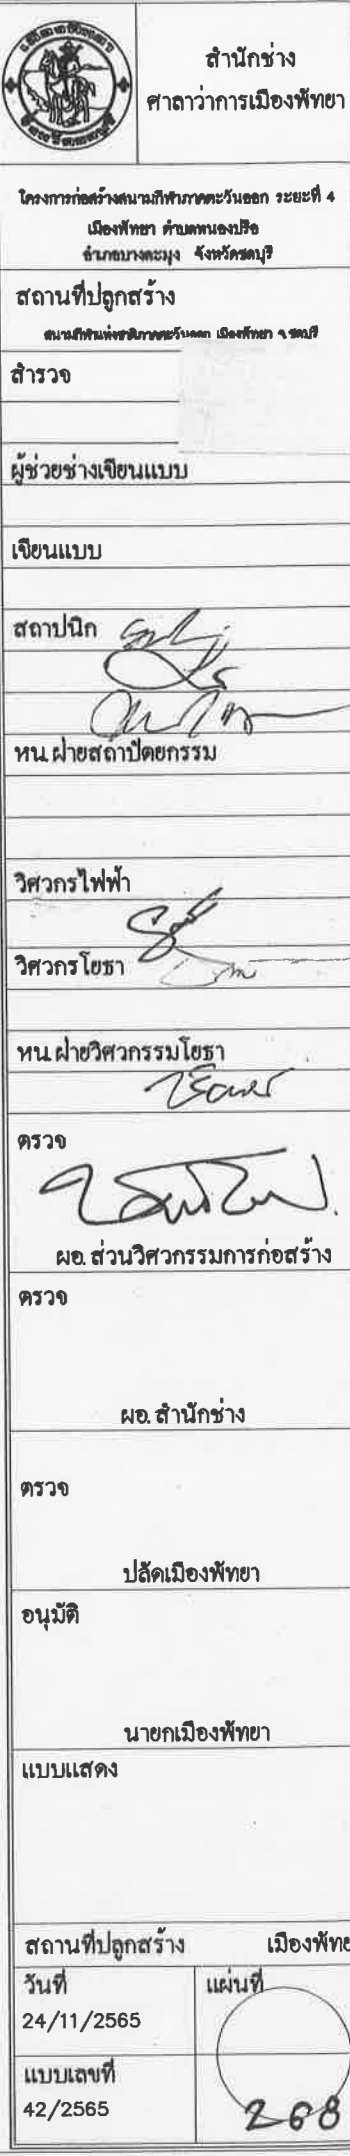 สำนักช่าง
ศาลาว่าการเมืองพัทยา
โครงการก่อสร้างสนามกีฬาภาคตะวันออก ระยะที่ 4
เมืองพัทยา ตำบลหนองปรือ
อำเภอบางละมุง จังหวัดชลบุรี
สถานที่ปลูกสร้าง
สนามกีฬาแห่งชาติภาคตะวันออก เมืองพัทยา จ.ชลบุรี
สำรวจ
ผู้ช่วยช่างเขียนแบบ
เขียนแบบ
สถาปนิก
หน.ฝ่ายสถาปัตยกรรม
วิศวกรไฟฟ้า
วิศวกรโยธา
หน.ฝ่ายวิศวกรรมโยธา
ตรวจ
ผอ.ส่วนวิศวกรรมการก่อสร้าง
ตรวจ
ผอ.สำนักช่าง
ตรวจ
ปลัดเมืองพัทยา
อนุมัติ
นายกเมืองพัทยา
แบบแสดง
สถานที่ปลูกสร้าง เมืองพัทย
วันที่ แผ่นที่
24/11/2565
แบบเลขที่
42/2565
268